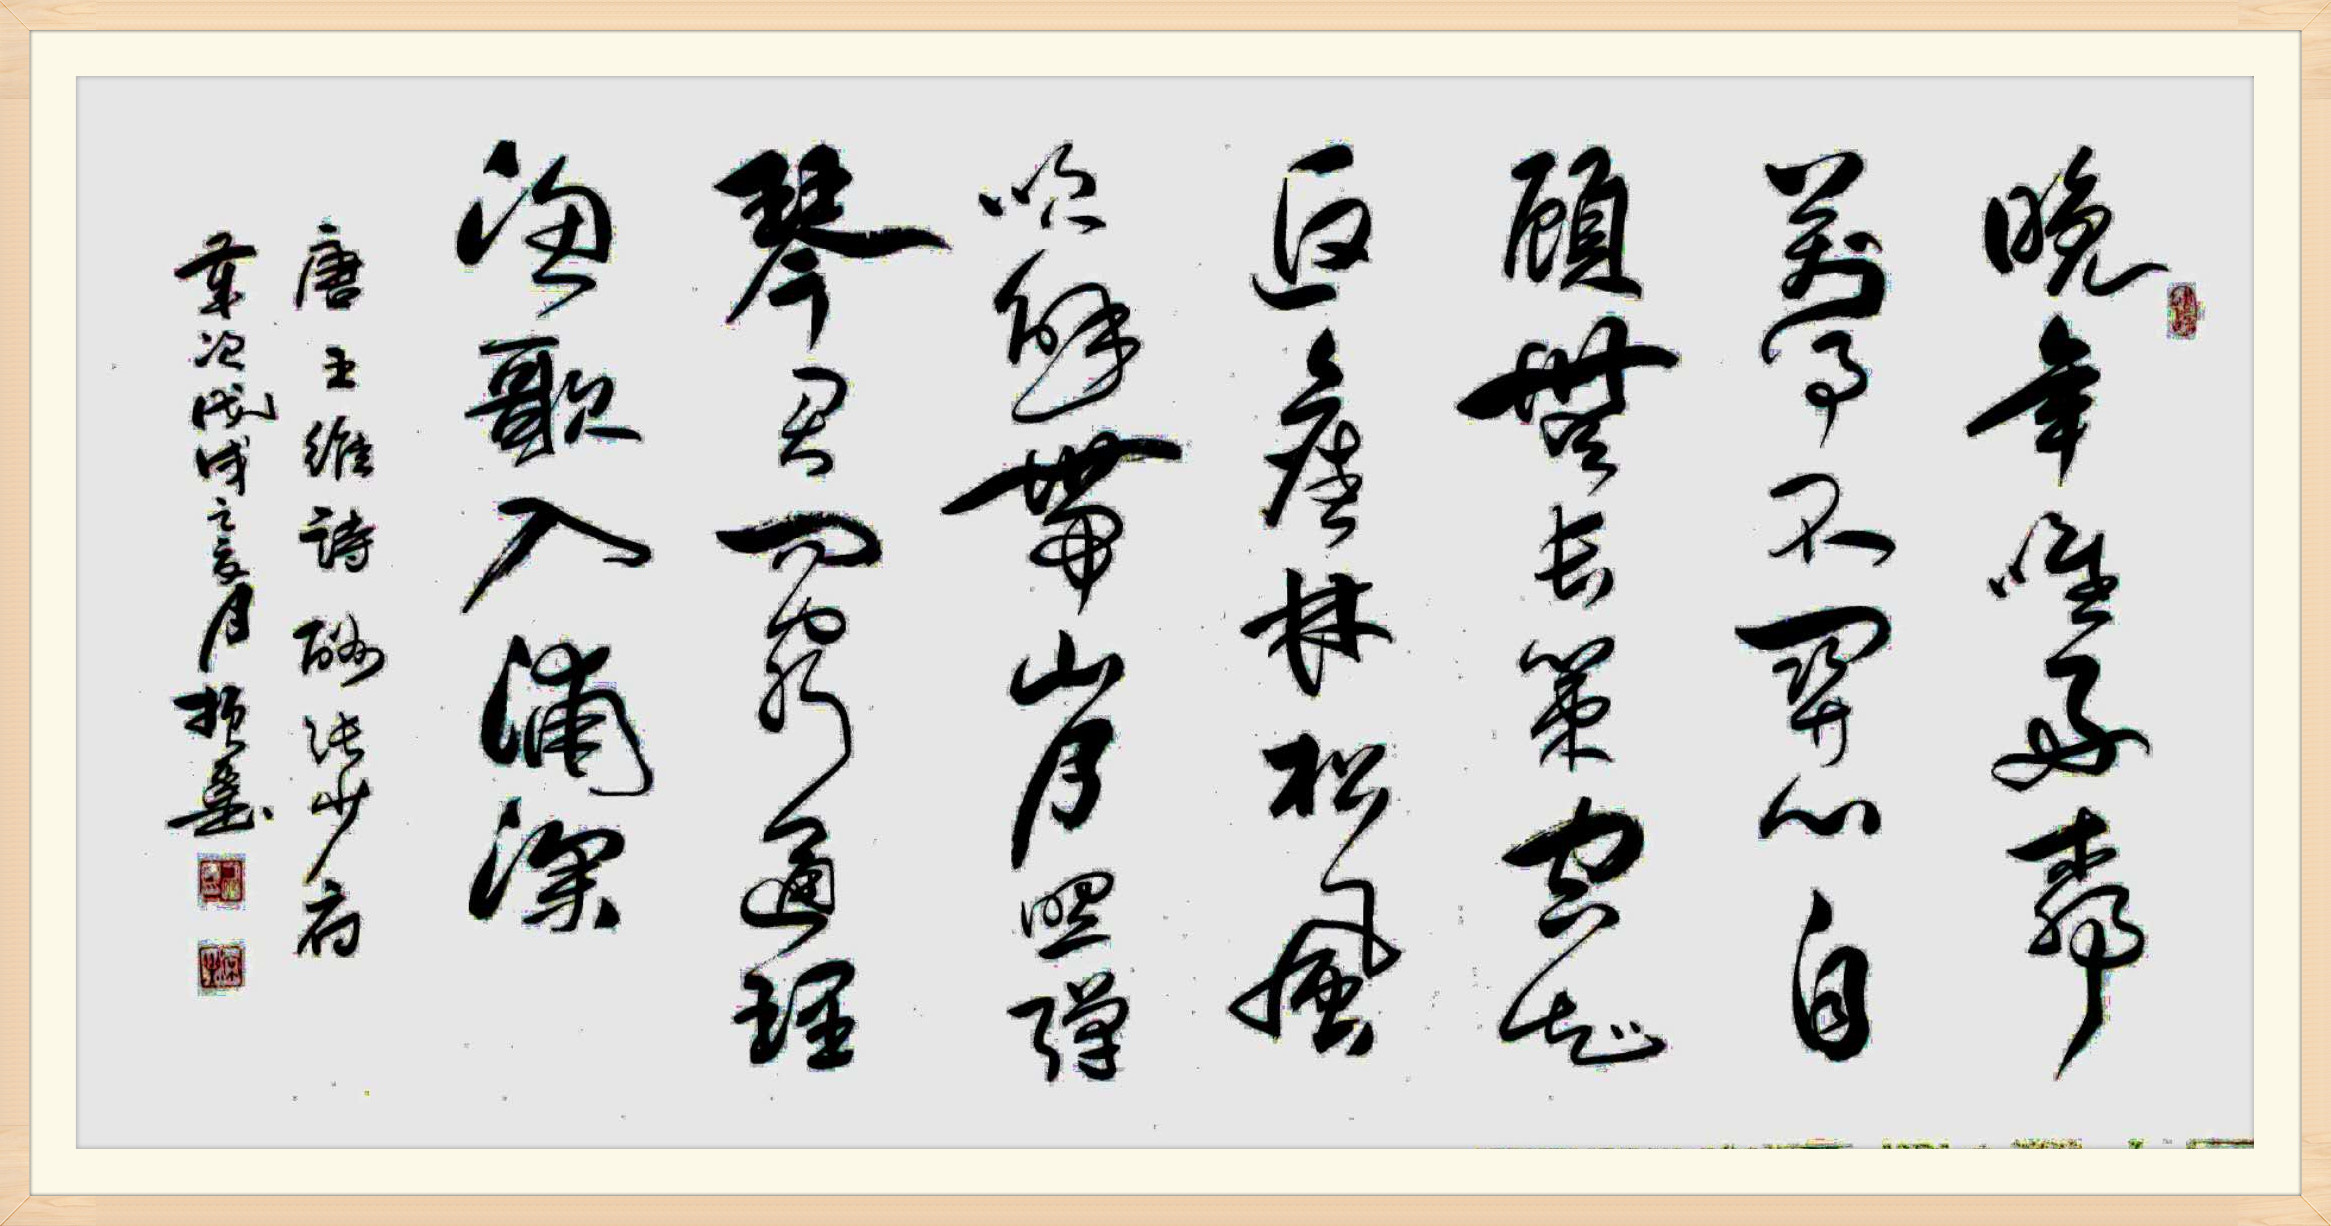 晚年唯好靜
萬事不關心自
顧無長策空知
返舊林松風
吹解帶山月照彈
琴君問窮通理
漁歌入浦深
唐王維詩酬張少府
歲次戊戌之夏月振